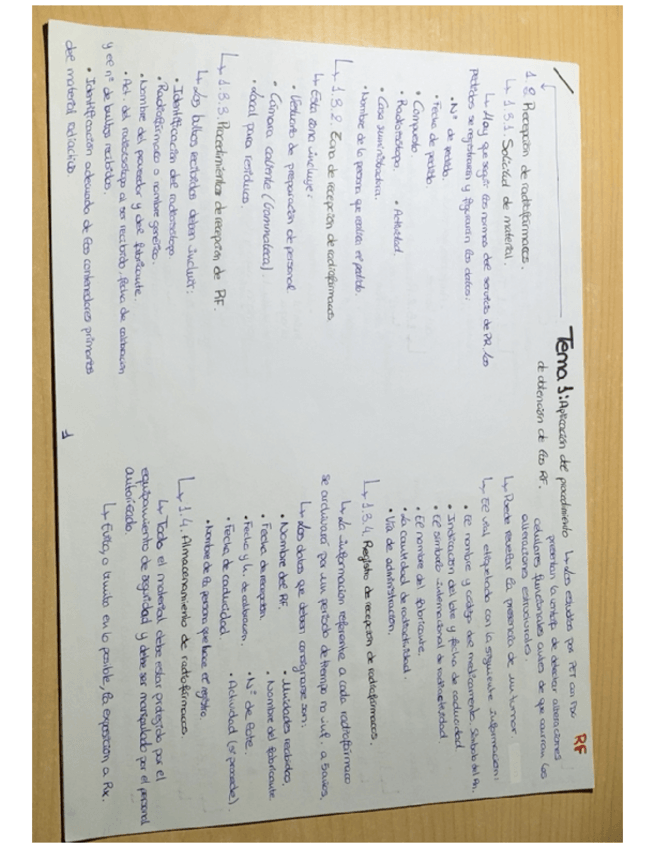 RF
Tema 1: Aplicación del procedimiento
de obtención de los RF.
1.3. Recepción de radiofármacos.
↳ 1.3.1. Solicitud de material.
↳ Hay que seguir las normas del servicio de PR. Los
pedidos se registrarán y figurarán los datos:
• Nº de pedido.
• Fecha de pedido.
• Compuesto.
• Radioisótopo. • Actividad.
• Casa suministradora.
• Nombre de la persona que realiza el pedido.
↳ 1.3.2. Zona de recepción de radiofármacos.
↳ Esta zona incluye:
• Vestuario de preparación de personal
• Cámara caliente (Gammateca).
• Local para residuos.
↳ 1.3.3. Procedimientos de recepción de RF.
↳ Los bultos recibidos deben incluir:
• Identificación del radioisótopo.
• Radiofármaco o nombre genérico.
• Nombre del proveedor y del fabricante.
• Act. del radioisótopo al ser recibido, fecha de calibración
y el nº de bultos recibidos.
• Identificación adecuada de los contenedores primarios
del material radiactivo.
1
↳ Los estudios por PET con
presentan la ventaja de detectar alteraciones
celulares funcionales antes de que ocurran las
alteraciones estructurales.
↳ Puede revelar la presencia de un tumor.
↳ El vial etiquetado con la siguiente información:
• El nombre y código del medicamento. Símbolo del
• Indicación del lote y fecha de caducidad
• El símbolo internacional de radioactividad
• El nombre del fabricante.
• La cantidad de radioactividad.
• Vía de administración.
↳ 1.3.4. Registro de recepción de radiofármacos.
↳ La información referente a cada radiofármaco
se archivará por un periodo de tiempo no inf. a 5 años.
↳ Los datos que deben consignarse son:
• Nombre del RF. • Unidades recibidas.
• Fecha de recepción. • Nombre del fabricante.
• Fecha y h. de calibración. • Nº de lote.
• Fecha de caducidad. • Actividad (si procede).
• Nombre de la persona que hace el registro.
↳ 1.4. Almacenamiento de radiofármacos
↳ Todo el material debe estar protegido por el
equipamiento de seguridad y debe ser manipulado por el personal
autorizado.
↳ Evitar, o limitar en lo posible, la exposición a Rx.